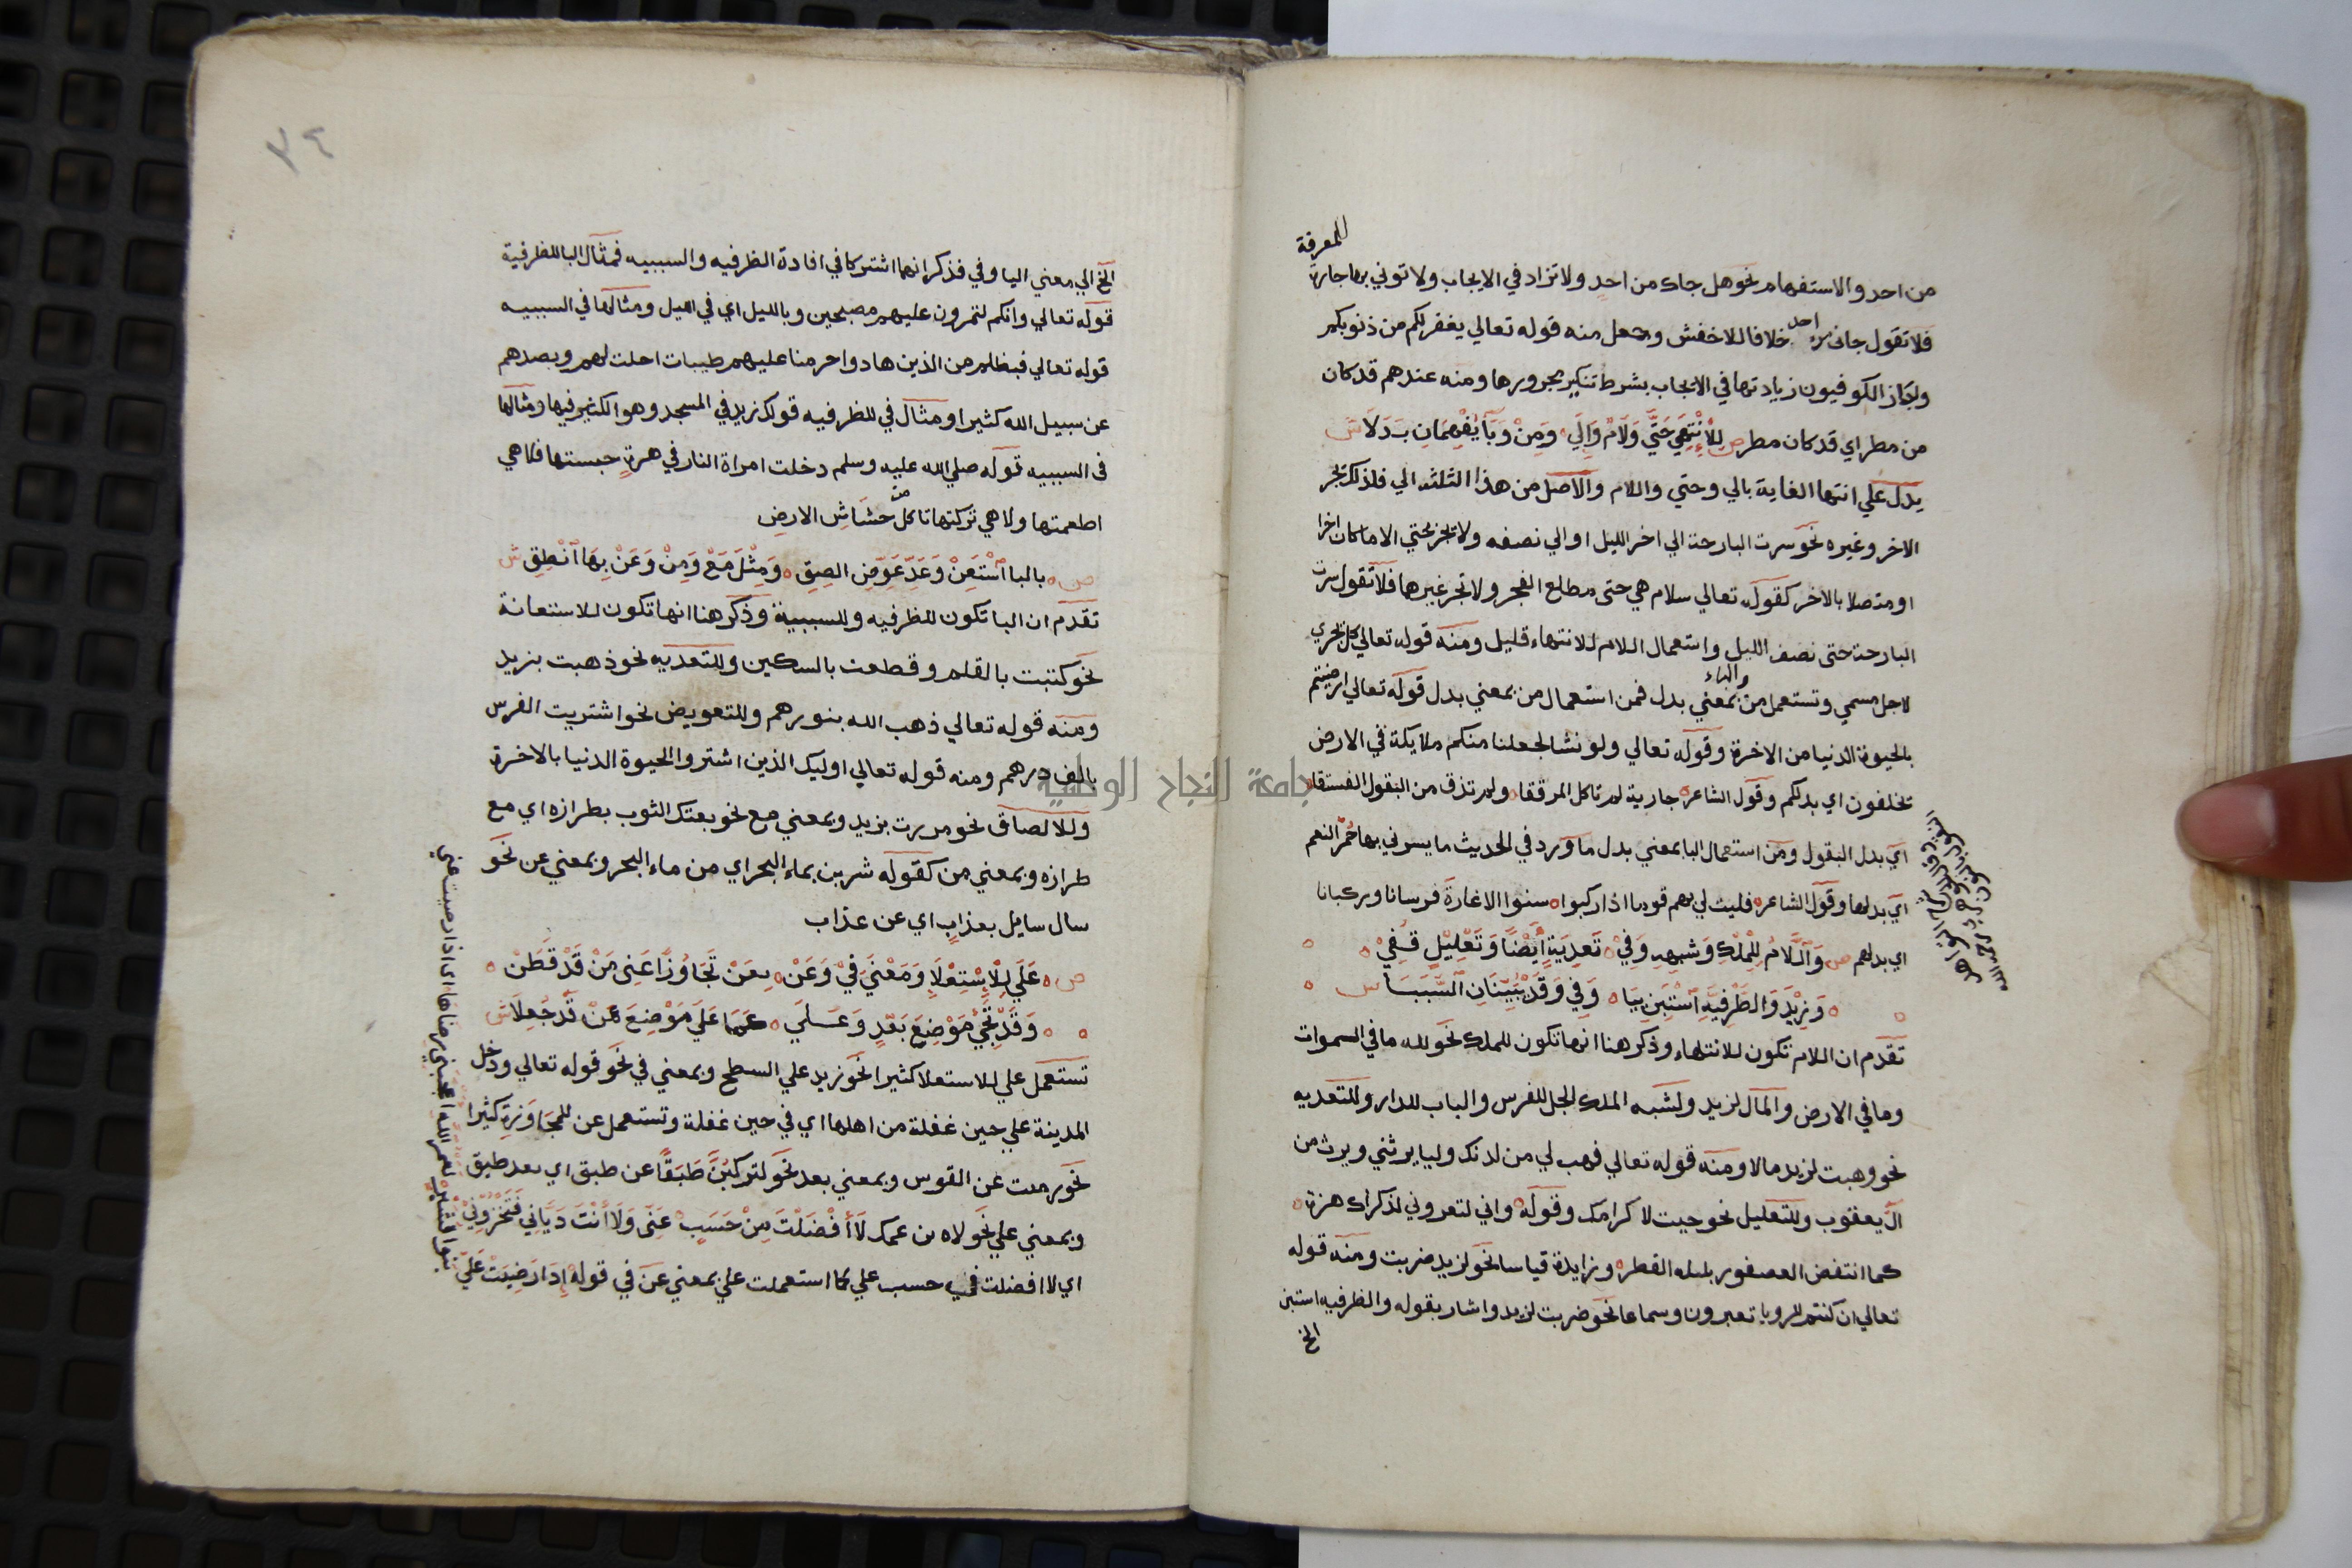 للمعرفة
من احد والاستفهام نحو هل جاك من احد ولا تزاد في الايجاب ولا توتي بها جارة
فلا تقول جاني من احد خلافا للاخفش وجعل منه قوله تعالي يغفر لكم من ذنوبكم
وجاز الكوفيون زيادتها في الايجاب بشرط تنكير مجرورها ومنه عندهم قد كان
من مطر اي قد كان مطر ص لِلْاِنْتِهَي حَتَّي وَلَامٌ وَاِلَي ٥ وَمِنْ وَبَآ يُفْهِمَانِ بَدَلَا ش
يدل علي انتها الغاية بالي وحتي واللام والاصل من هذا الثلثه الي فلذلك تجر
الاخر وغيره نحو سرت البارحة الي اخر الليل او الي نصفه ولا تجر بحتي الا ما كان اخرا
او متصلا بالاخر كقوله تعالي سلام هي حتى مطلع الفجر ولا تجر غيرها فلا تقول سرت
البارحة حتى نصف الليل واستعمال اللام للانتهاء قليل ومنه قوله تعالي كل تجري
لاجل مسمي وتستعمل من والباء بمعني بدل فمن استعمال من بمعني بدل قوله تعالي ارضيتم
بالحيوة الدنيا من الاخرة وقوله تعالي ولو نشا لجعلنا منكم ملايكة في الارض
تخلفون اي بدلكم وقول الشاعر ٥ جارية لم تاكل المرققا ٥ ولم تذق من البقول الفستقا ٥
اي بدل البقول ومن استعمال البا بمعني بدل ما ورد في الحديث ما يسوني بها حُمْرُ النعم
اي بدلها وقول الشاعر ٥ فليت لي بهم قوما اذا ركبوا ٥ سنوا الاغارة فرسانا وركبانا
اي بدلهم ص وَاللَّامُ لِلْمِلْكِ وَشِبْهِهِ وَفِيْ ٥ تَعْدِيَةٍ أَيْضًا وَتَعْلِيْلٍ قُفِيْ ٥
٥ وَزِيْدَ وَالظَّرْفِيَّةِ اَسْتَبِنْ بِبَا ٥ وَفِي وَقَدْ يُبَيِّنَانِ السَّبَبَا س
تقدم ان اللام تكون للانتهاء وذكر هنا انها تكون للملك نحو لله ما في السموات
وما في الارض والمال لزيد ولشبه الملك الجل للفرس والباب للدار وللتعديه
نحو وهبت لزيد مالا ومنه قوله تعالي فهب لي من لدنك وليا يرثني ويرث من
ال يعقوب وللتعليل نحو جيت لاكرامك وقوله ٥ واني لتعروني لذكراك هزة ٥
كما انتفض العصفور بلله القطر ٥ وزايدة قياسا نحو لزيد ضربت ومنه قوله
تعالي ان كنتم للرويا تعبرون وسماعا نحو ضربت لزيد واشار بقوله والظرفيه استبن
الخ
٣٤
الخ الي معني اليا وفي فذكر انهما اشتركا في افادة الظرفيه والسببيه فمثال البا للظرفية
قوله تعالي وانكم لتمرون عليهم مصبحين وبالليل اي في الليل ومثالها في السببيه
قوله تعالي فبظلم من الذين هادوا حرمنا عليهم طيبات احلت لهم وبصدهم
عن سبيل الله كثيرا ومثال في للظرفيه قولك زيد في المسجد وهو الكثير فيها ومثالها
في السببيه قوله صلي الله عليه وسلم دخلت امراة النار في هرةٍ حبستها فلا هي
اطعمتها ولا هي تركتها تاكل من خشاشِ الارضِ
ص ٥ بالبا اسْتَعِنْ وَعَدِّ عَوِّضِ الصِقِ ٥ وَمِثْلَ مَعْ وَمِنْ وَعَنْ بِهَا انْطِقِ ش
تقدم ان البا تكون للظرفيه وللسببية وذكر هنا انها تكون للاستعانة
نحو كتبت بالقلم وقطعت بالسكين وللتعديه نحو ذهبت بزيد
ومنه قوله تعالي ذهب الله بنورهم وللتعويض نحو اشتريت الفرس
بالف درهم ومنه قوله تعالي اوليك الذين اشتروا الحيوة الدنيا بالاخرة
وللالصاق نحو مررت بزيد وبمعني مع نحو بعتك الثوب بطرازه اي مع
طرازه وبمعني من كقوله شربن بماء البحر اي من ماء البحر وبمعني عن نحو
سال سايل بعذابٍ اي عن عذاب
ص ٥ عَلَي لِلْاِسْتِعْلَا وَمَعْنَي فِيْ وَعَنْ ٥ بِعَنْ تَجَاوُزًا عَنِى مَنْ قَدْ فَطَنْ ٥
٥ وَقَدْ تَجِيْ مَوْضِعَ بَعْدٍ وَعَلَي ٥ كَمَا عَلَي مَوْضِعَ عَنْ قَدْ جُعِلَا ش
تستعمل علي للاستعلا كثيرا نحو زيد علي السطح وبمعني في نحو قوله تعالي ودخل
المدينة علي حين غفلة من اهلها اي في حين غفلة وتستعمل عن للمجاوزة كثيرا
نحو رميت عن القوس وبمعني بعد نحو لتركبُنَّ طَبَقًا عن طبق اي بعد طبق
وبمعني علي نحو لاه بن عمك لَا أَفْضَلْتَ مِنْ حَسَبٍ ٥ عَنِّى وَلَا أَنْتَ دَيَّانِي فَتَخْزُوْنِيْ
اي لا افضلت في حسب علي كما استعملت علي بمعني عن في قوله إِذَا رَضِيَتْ عَلَيَّ
بنوا قشير ٥ لعمر الله اعجبني رضاها ٥ اي اذا رضيت عني
جامعة النجاح الوطنية